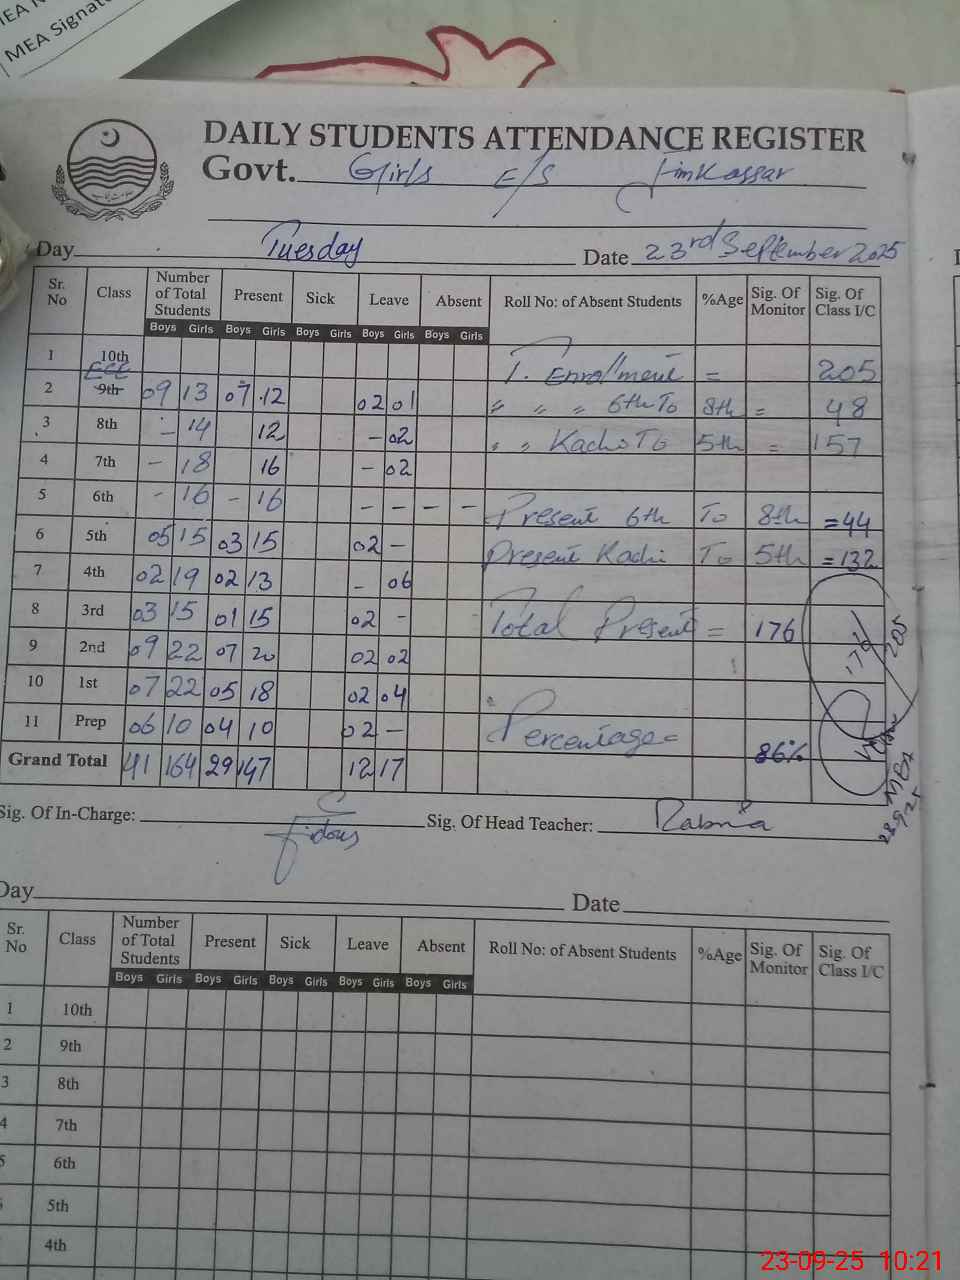 MEA Signatu
DAILY STUDENTS ATTENDANCE REGISTER
Govt. Girls E/S Jimkassar
Day Tuesday Date 23rd September 2025
Sr. No Class Number of Total Students Present Sick Leave Absent Roll No: of Absent Students %Age Sig. Of Monitor Sig. Of Class I/C
Boys Girls Boys Girls Boys Girls Boys Girls Boys Girls
1 10th T. Enrollment = 205
2 9th ECE 09 13 07 12 02 01 " " " 6th To 8th = 48
3 8th - 14 12 - 02 " " Kachi To 5th = 157
4 7th - 18 16 - 02
5 6th - 16 - 16 - - - - Present 6th To 8th = 44
6 5th 05 15 03 15 02 - Present Kachi To 5th = 132
7 4th 02 19 02 13 - 06
8 3rd 03 15 01 15 02 - Total Present = 176
9 2nd 09 22 07 20 02 02 176/205
10 1st 07 22 05 18 02 04
11 Prep 06 10 04 10 02 - Percentage = 86%
Grand Total 41 164 29 147 12 17
MEA
Sig. Of In-Charge: Sig. Of Head Teacher: Rabia
Day Date
Sr. No Class Number of Total Students Present Sick Leave Absent Roll No: of Absent Students %Age Sig. Of Monitor Sig. Of Class I/C
Boys Girls Boys Girls Boys Girls Boys Girls Boys Girls
1 10th
2 9th
3 8th
4 7th
5 6th
5th
4th
23-09-25 10:21